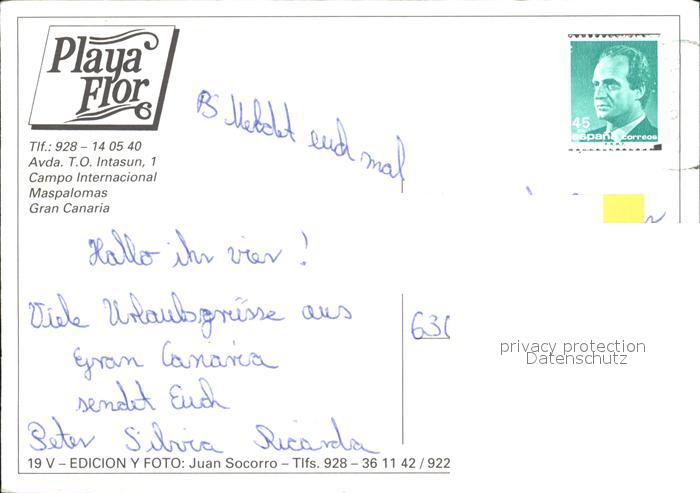 Playa
Flor
Tlf.: 928 – 14 05 40
Avda. T.O. Intasun, 1
Campo Internacional
Maspalomas
Gran Canaria
45
españa correos
F.N.M.T.
Meldet euch mal
Hallo ihr vier !
Viele Urlaubsgrüsse aus
Gran Canaria
sendet Euch
Peter Silvia Ricarda
privacy protection
Datenschutz
19 V – EDICION Y FOTO: Juan Socorro – Tlfs. 928 – 36 11 42 / 922